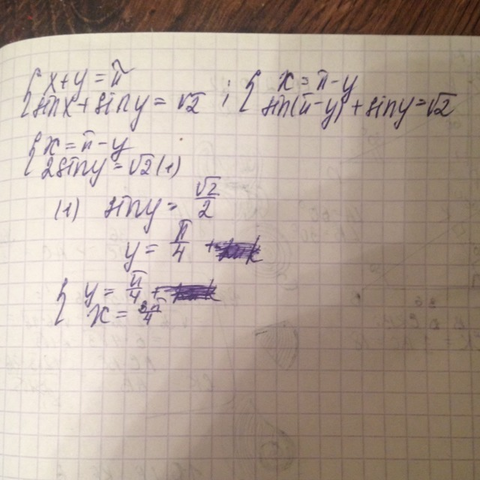 { x+y = π
{ sinx + siny = √2 ; { x = π-y
{ sin(π-y) + siny = √2
{ x = π-y
{ 2siny = √2 (1)
(1) siny = √2/2
y = π/4 +
{ y = π/4 +
{ x = 3π/4